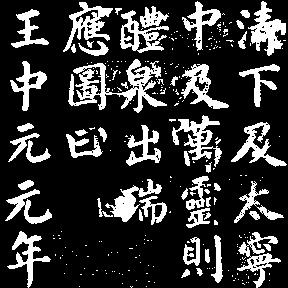 清下及太寧
中及萬靈則
醴泉出瑞
應圖曰
王中元元年